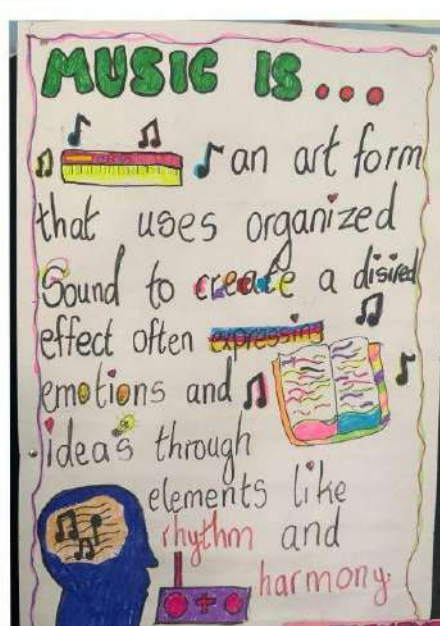 MUSIC IS...
an art form
that uses organized
Sound to create a disired
effect often expressing
emotions and
ideas through
elements like
rhythm and
harmony.